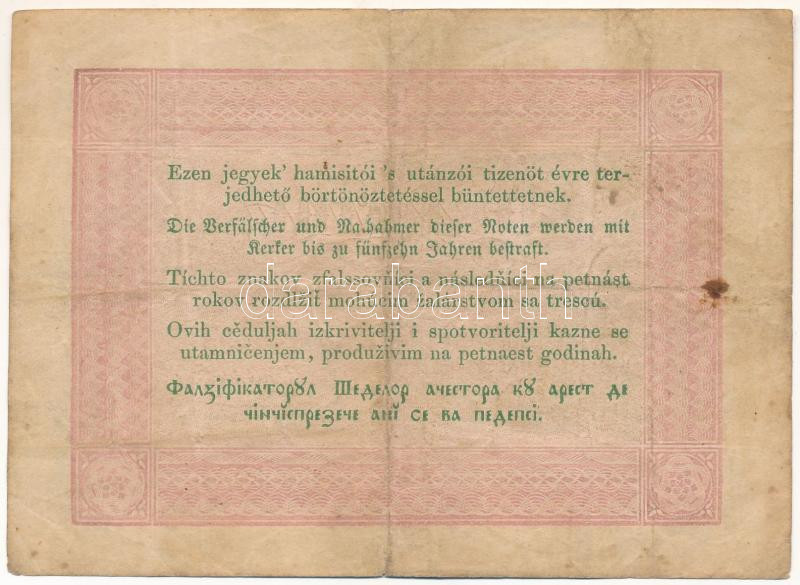 Ezen jegyek' hamisitói 's utánzói tizenöt évre ter-
jedhető börtönöztetéssel büntettetnek.
Die Verfälscher und Nachahmer dieser Noten werden mit
Kerker bis zu fünfzehn Jahren bestraft.
Tíchto znakov zfalssovňíci a násladňíci na petnást
rokov rozdlžiť mohúcim žalárstvom sa trescú.
Ovih cěduljah izkrivitelji i spotvoritelji kazne se
utamničenjem, produživim na petnaest godinah.
Фалзіфікаторꙋл Шеделор ачестора кꙋ арест де
чінчіспрезече анї се ва педепсі.
darabanth